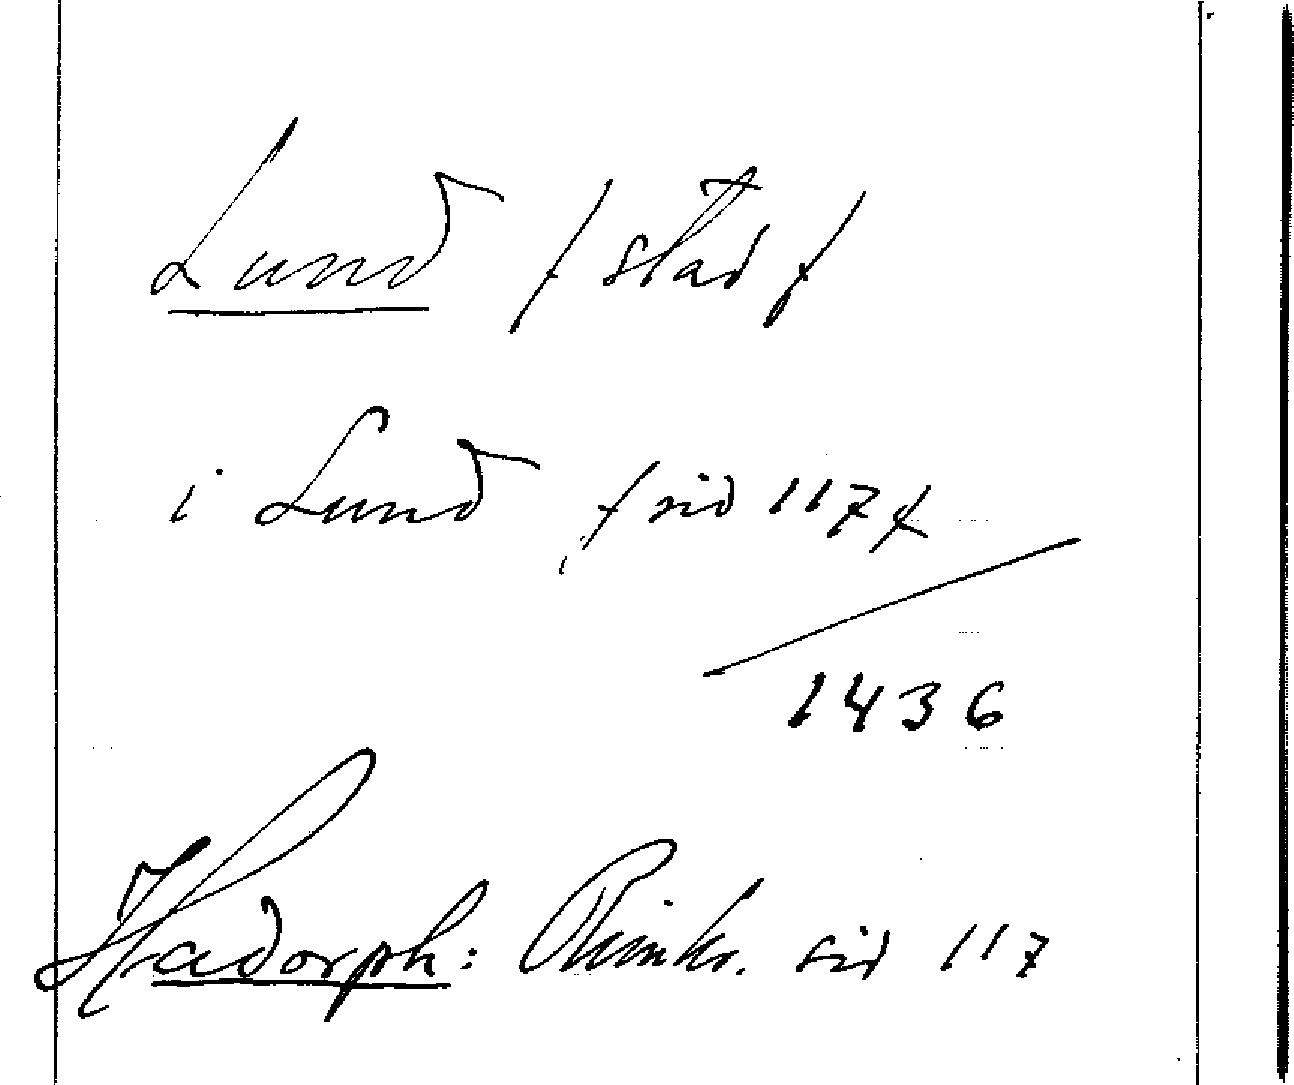 Lund / stad /
i Lund / sid 117 /
1436
Hadorph: Rimkr. sid 117